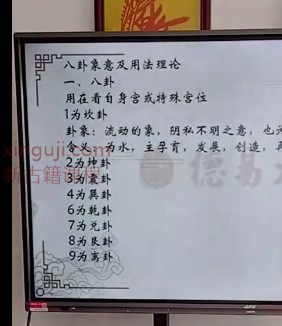 八卦象意及用法理论
一、八卦
用在看自身宫或特殊宫位
1为坎卦
卦象：流动的象，阴私不明之意，也
为水，主孕育，发展，创造，
2为坤卦
3为震卦
4为巽卦
6为乾卦
7为兑卦
8为艮卦
9为离卦
德易